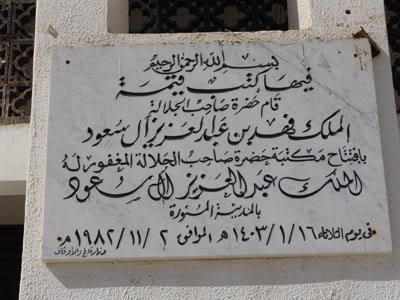 بسم الله الرحمن الرحيم
فيها كتب قيمة
قام حضرة صاحب الجلالة
الملك فهد بن عبد العزيز آل سعود
بافتتاح مكتبة حضرة صاحب الجلالة المغفور له
الملك عبد العزيز آل سعود
بالمدينة المنورة
فى يوم الثلاثاء ١٤٠٣/١/١٦ هـ الموافق ١٩٨٢/١١/٢م
وزارة الحج والأوقاف